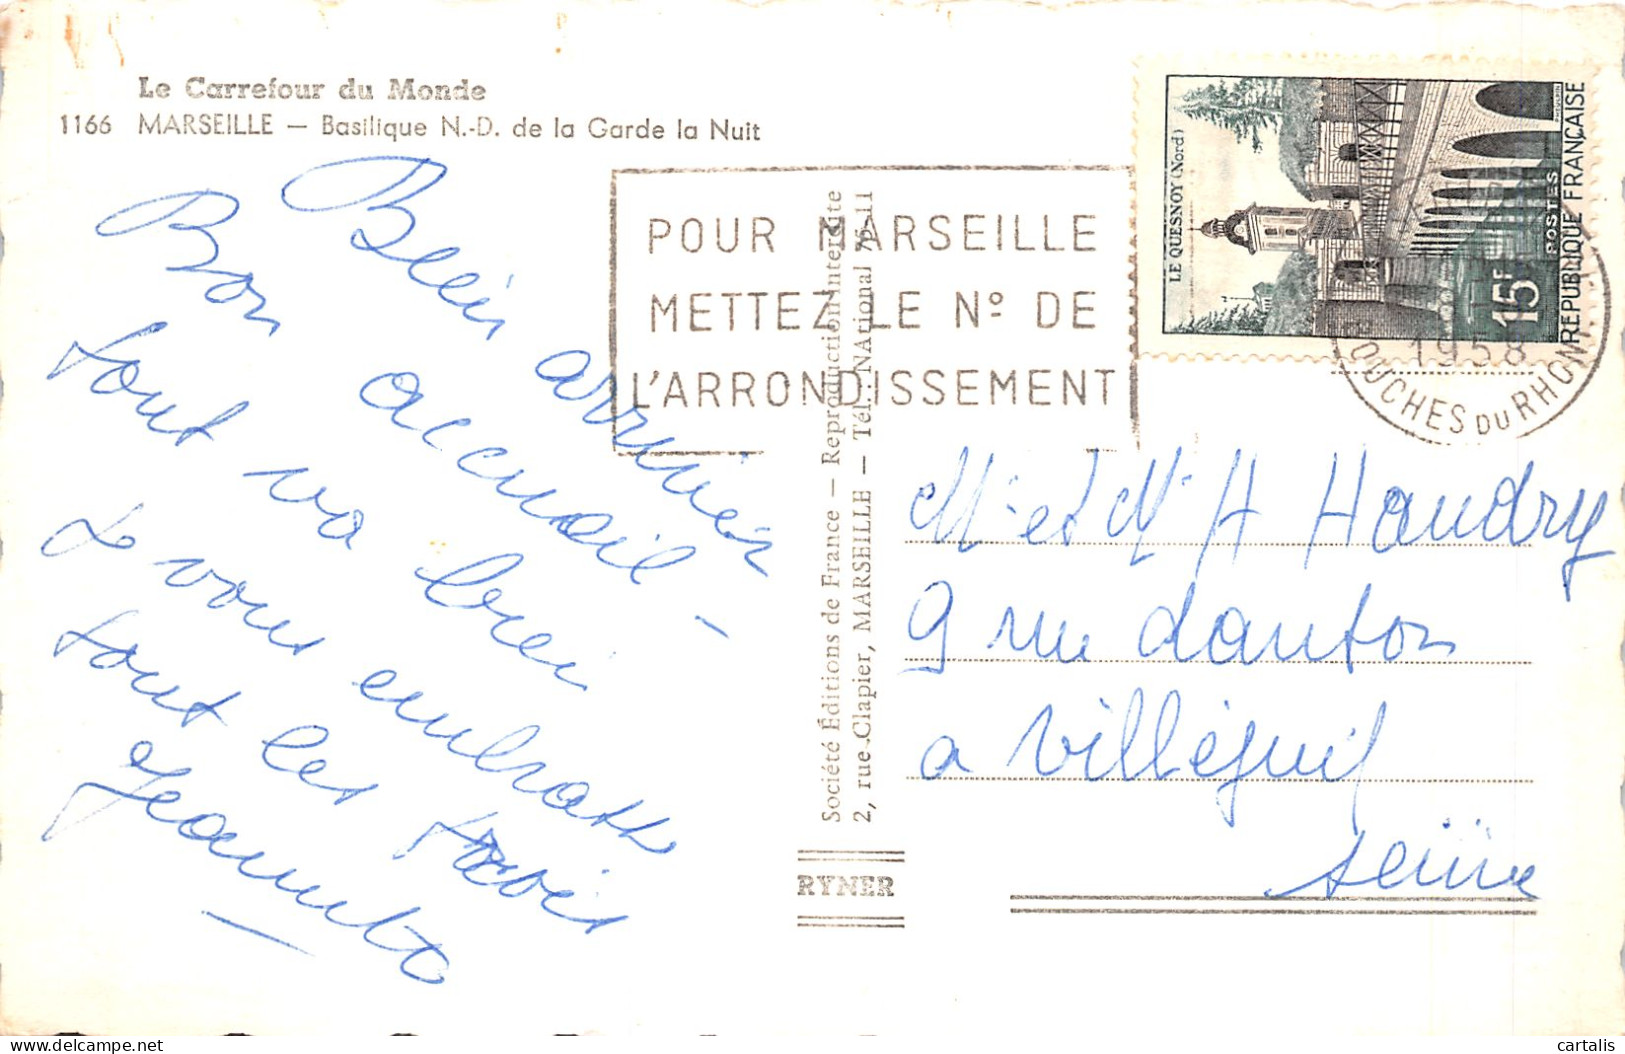 Le Carrefour du Monde
1166 MARSEILLE — Basilique N.-D. de la Garde la Nuit
Bien arrivés
Bon accueil –
tout va bien
Je vous embrasse
tout les trois
Jeannette
POUR MARSEILLE
METTEZ LE Nº DE
L'ARRONDISSEMENT
Société Éditions de France — Reproduction Interdite
2, rue Clapier, MARSEILLE — Tél. NAtional 76-11
RYNER
LE QUESNOY (Nord)
15F
POSTES
RÉPUBLIQUE FRANÇAISE
1958
BOUCHES DU RHONE
Mr et Mr A Haudry
9 rue danton
a Villéjuif
seine
cartalis